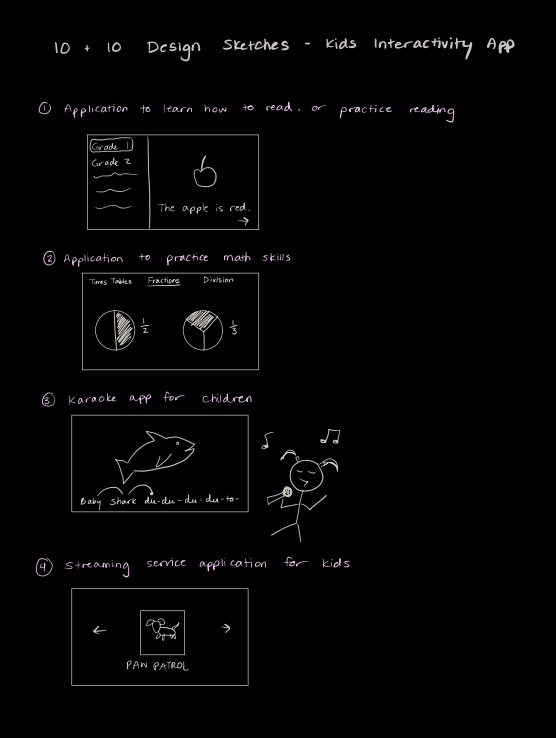 10 + 10 Design Sketches - Kids Interactivity App
① Application to learn how to read, or practice reading
Grade 1
Grade 2
The apple is red.
→
② Application to practice math skills
Times Tables Fractions Division
1/2
1/3
③ Karaoke app for children
Baby Shark du-du-du-du-to-
④ Streaming service application for kids
← →
PAW PATROL